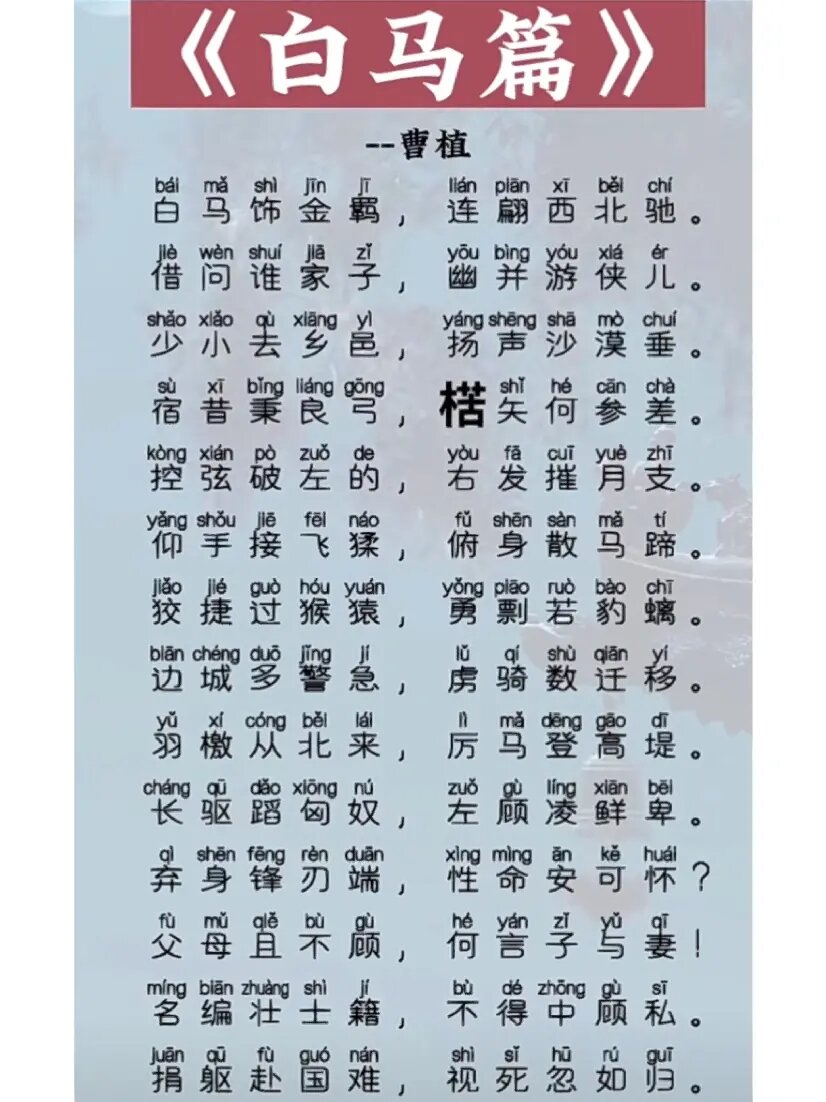 《白马篇》
--曹植
bái mǎ shì jīn jī lián piān xī běi chí
白马饰金羁，连翩西北驰。
jiè wèn shuí jiā zǐ yōu bìng yóu xiá ér
借问谁家子，幽并游侠儿。
shǎo xiǎo qù xiāng yì yáng shēng shā mò chuí
少小去乡邑，扬声沙漠垂。
sù xī bǐng liáng gōng shǐ hé cān chà
宿昔秉良弓，楛矢何参差。
kòng xián pò zuǒ de yòu fā cuī yuè zhī
控弦破左的，右发摧月支。
yǎng shǒu jiē fēi náo fǔ shēn sàn mǎ tí
仰手接飞猱，俯身散马蹄。
jiǎo jié guò hóu yuán yǒng piāo ruò bào chī
狡捷过猴猿，勇剽若豹螭。
biān chéng duō jǐng jí lǔ qí shù qiān yí
边城多警急，虏骑数迁移。
yǔ xí cóng běi lái lì mǎ dēng gāo dī
羽檄从北来，厉马登高堤。
cháng qū dǎo xiōng nú zuǒ gù líng xiān bēi
长驱蹈匈奴，左顾凌鲜卑。
qì shēn fēng rèn duān xìng mìng ān kě huái
弃身锋刃端，性命安可怀？
fù mǔ qiě bù gù hé yán zǐ yǔ qī
父母且不顾，何言子与妻！
míng biān zhuàng shì jí bù dé zhōng gù sī
名编壮士籍，不得中顾私。
juān qū fù guó nán shì sǐ hū rú guī
捐躯赴国难，视死忽如归。